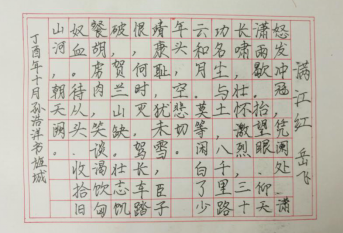 满江红 岳飞
怒发冲冠，凭阑处、潇
潇雨歇。抬望眼，仰天
长啸，壮怀激烈。三十
功名尘与土，八千里路
云和月。莫等闲、白了少
年头，空悲切。
靖康耻，犹未雪。臣子
恨，何时灭。驾长车踏
破，贺兰山缺。壮志饥
餐胡虏肉，笑谈渴饮匈
奴血。待从头、收拾旧
山河，朝天阙。
丁酉年十月孙浩洋书雄城